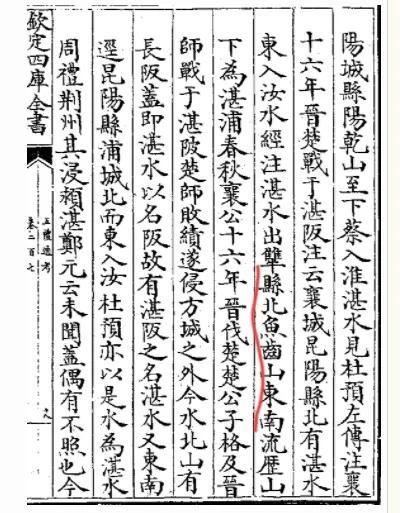 陽城縣陽乾山至下蔡入淮湛水見杜預左傳注襄
十六年晉楚戰于湛阪注云襄城昆陽縣北有湛水
東入汝水經注湛水出犨縣北魚齒山東南流歷山
下為湛浦春秋襄公十六年晉伐楚楚公子格及晉
師戰于湛陂楚師敗績遂侵方城之外今水北山有
長阪蓋即湛水以名阪故有湛阪之名湛水又東南
逕昆陽縣浦城北而東入汝杜預亦以是水為湛水
周禮荆州其浸潁湛鄭元云未聞蓋偶有不照也今
欽定四庫全書
五禮通考
卷二百七